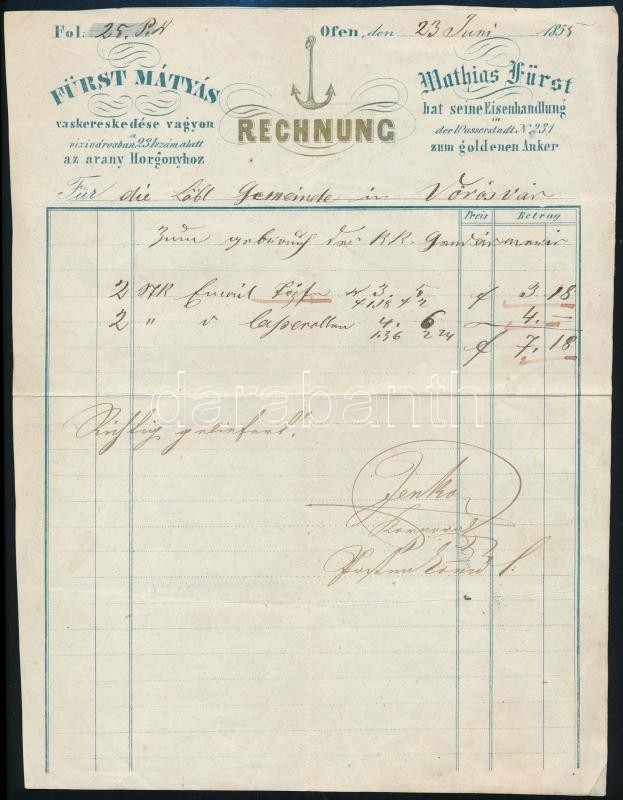 Fol: 25. P. N
Ofen, den 23 Juni 1855
FÜRST MÁTYÁS
vaskereskedése vagyon
a
vizivárosban 231 szám alatt
az arany Horgonyhoz
RECHNUNG
Mathias Fürst
hat seine Eisenhandlung
in
der Wasserstadt No. 231
zum goldenen Anker
Für die Löbl Gemeinde in Vörösvár
Preis Betrag
Zum gebrauch der KK. Gendarmerie
2 Stk Email Töpfe N 3. 5 f 3. 18
1.18 2
2 " " Casserollen 4. 6 4. —
1.36 2 24
f 7. 18
Richtig geliefert.
Jenko
Korporal
Posten
darabanth